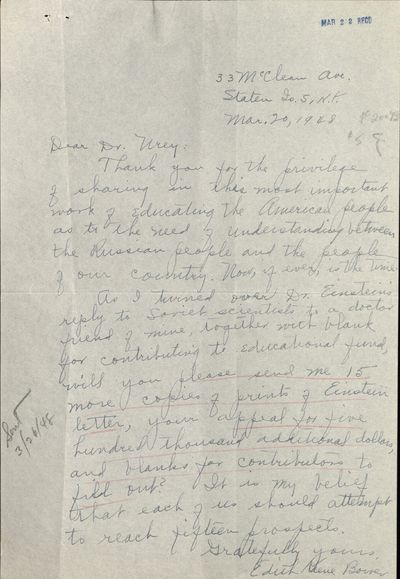 MAR 22 RECD
33 McClean Ave.
Staten Is. 5, N.Y.
Mar. 20, 1948
Dear Dr. Urey:
Thank you for the privilege
of sharing in this most important
work of educating the American people
as to the need of understanding between
the Russian people and the people
of our country. Now, if ever, is the time.
As I turned over Dr. Einstein's
reply to Soviet scientists to a doctor
friend of mine, together with blank
for contributing to educational fund,
will you please send me 15
more copies of prints of Einstein
letter, your appeal for five
hundred thousand additional dollars,
and blanks for contributors to
fill out? It is my belief
that each of us should attempt
to reach fifteen prospects.
Gratefully yours,
Edith
Sent
3/24/48